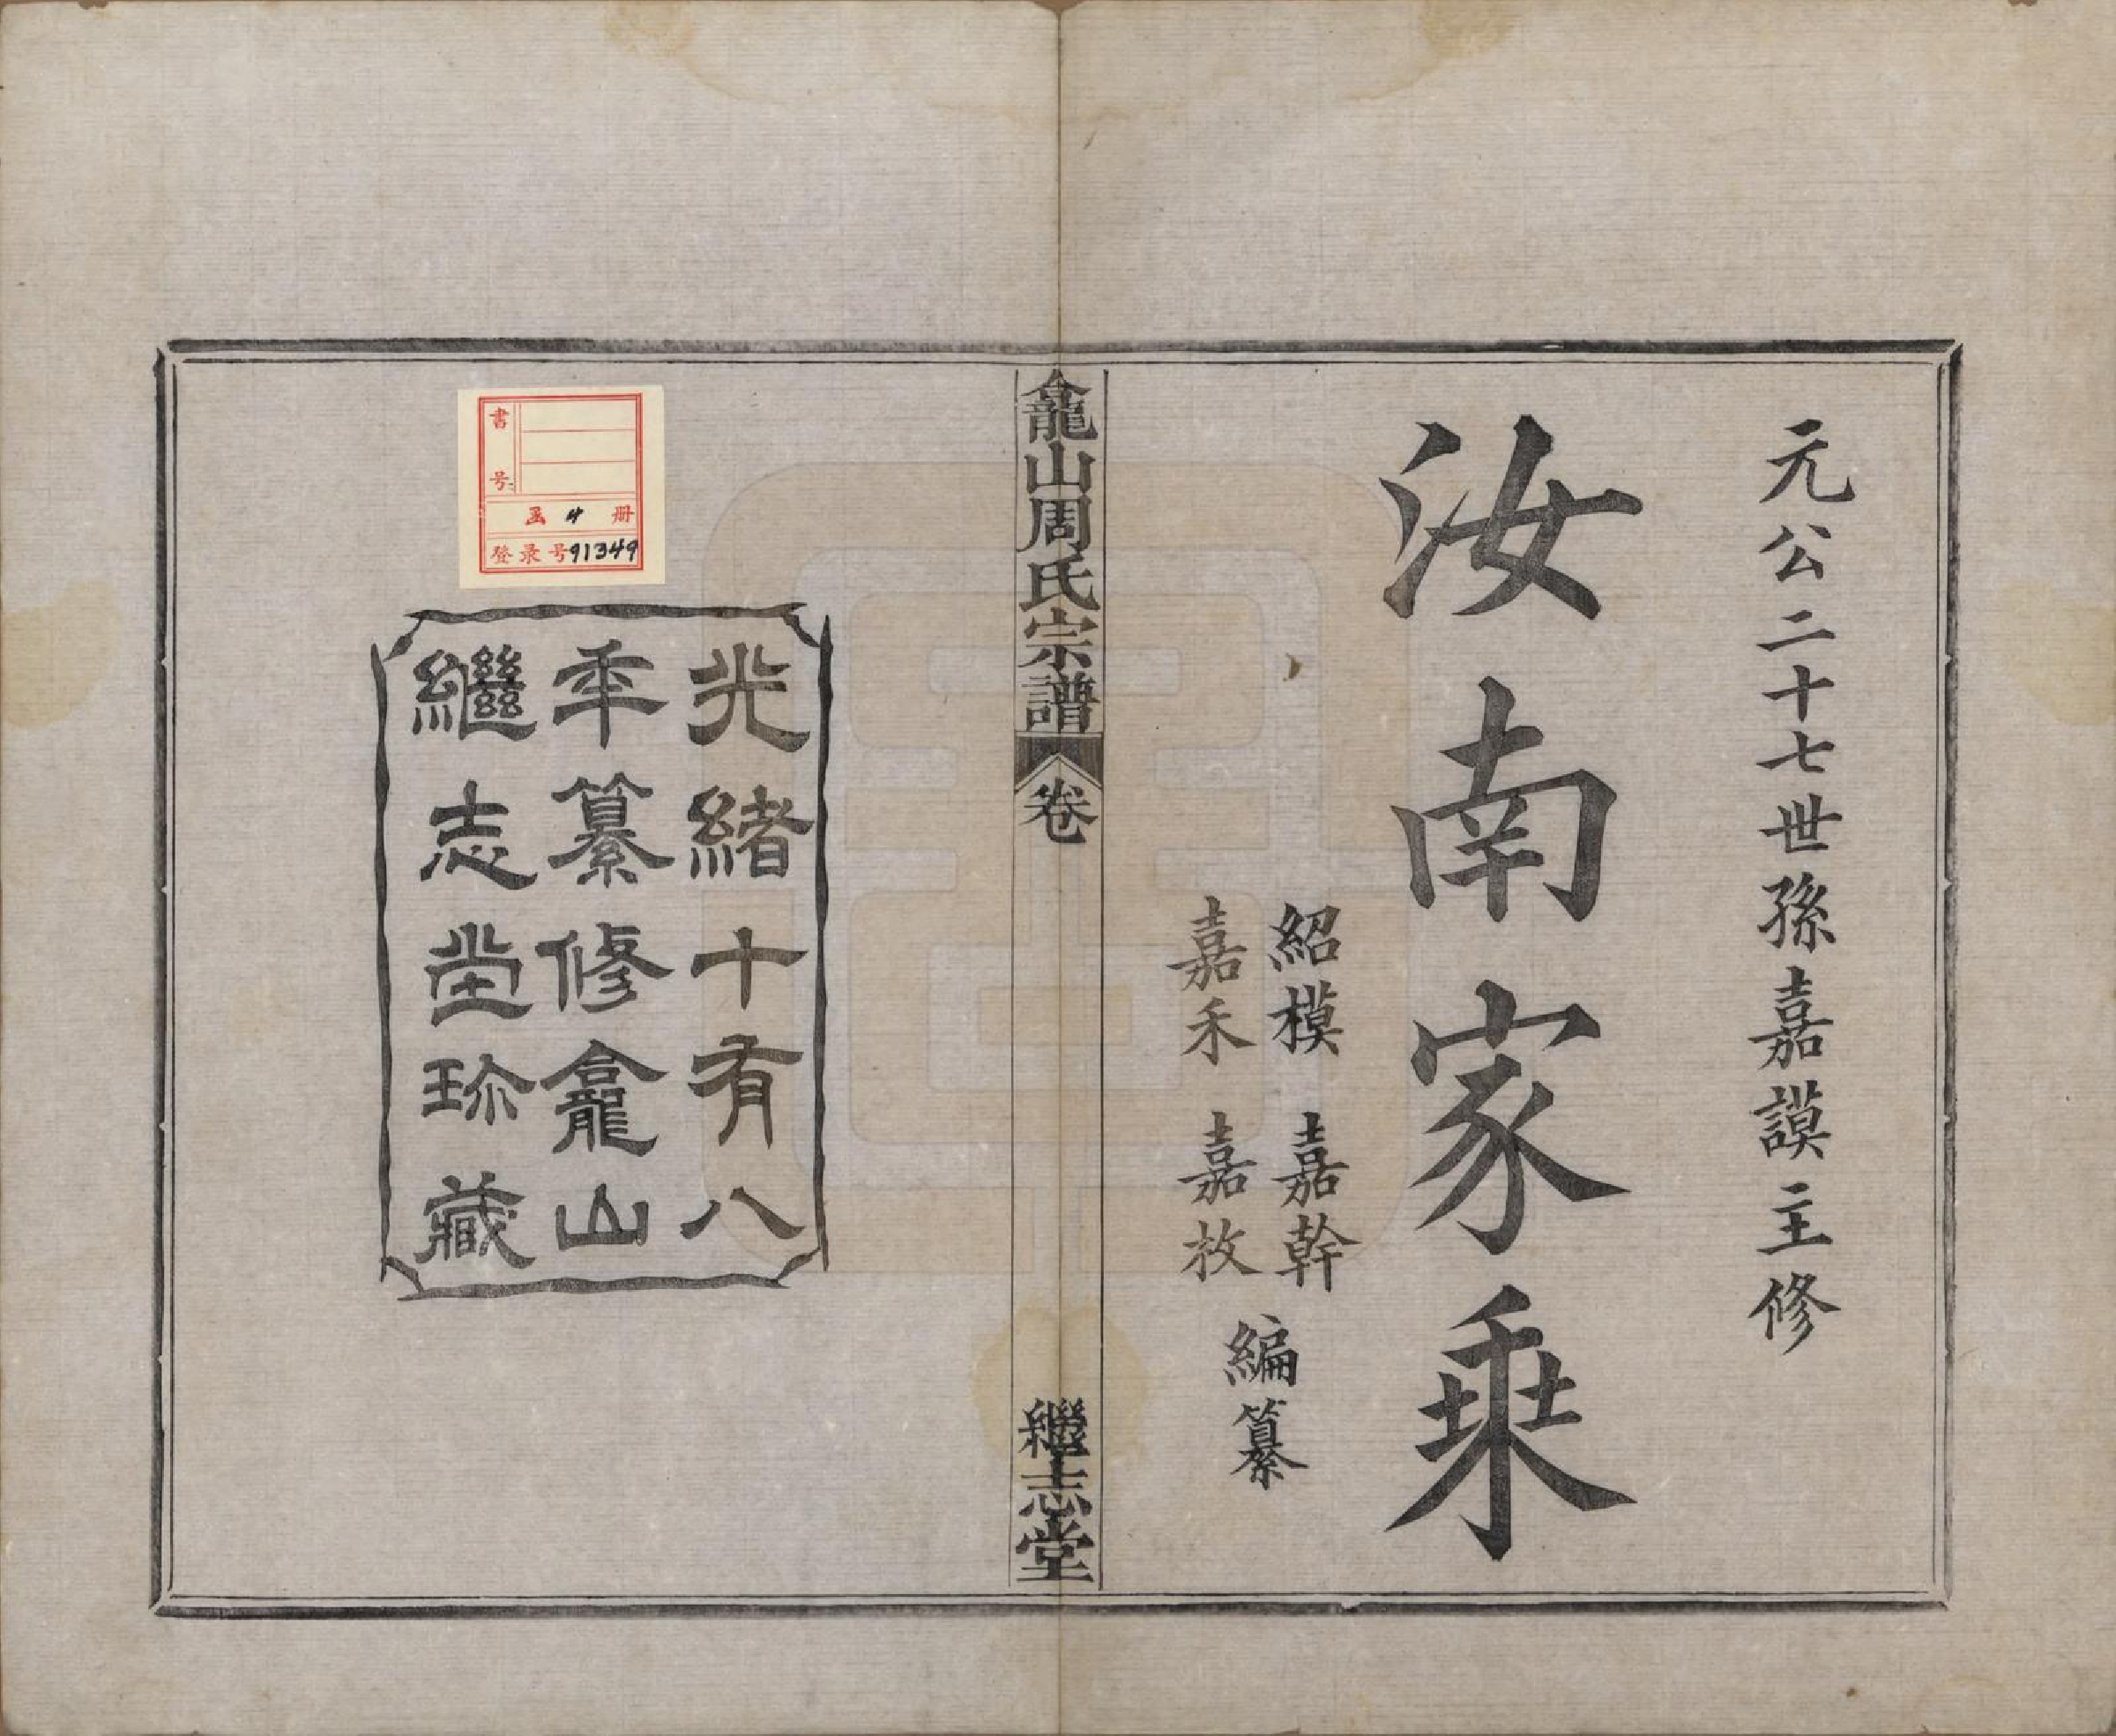 元公二十七世孫嘉謨主修
汝南家乘
紹模　嘉幹
嘉禾　嘉枚
編纂
龕山周氏宗譜　卷
繼志堂
光緒十有八
年纂修龕山
繼志堂珎藏
書号
函 4 册
登录号91349